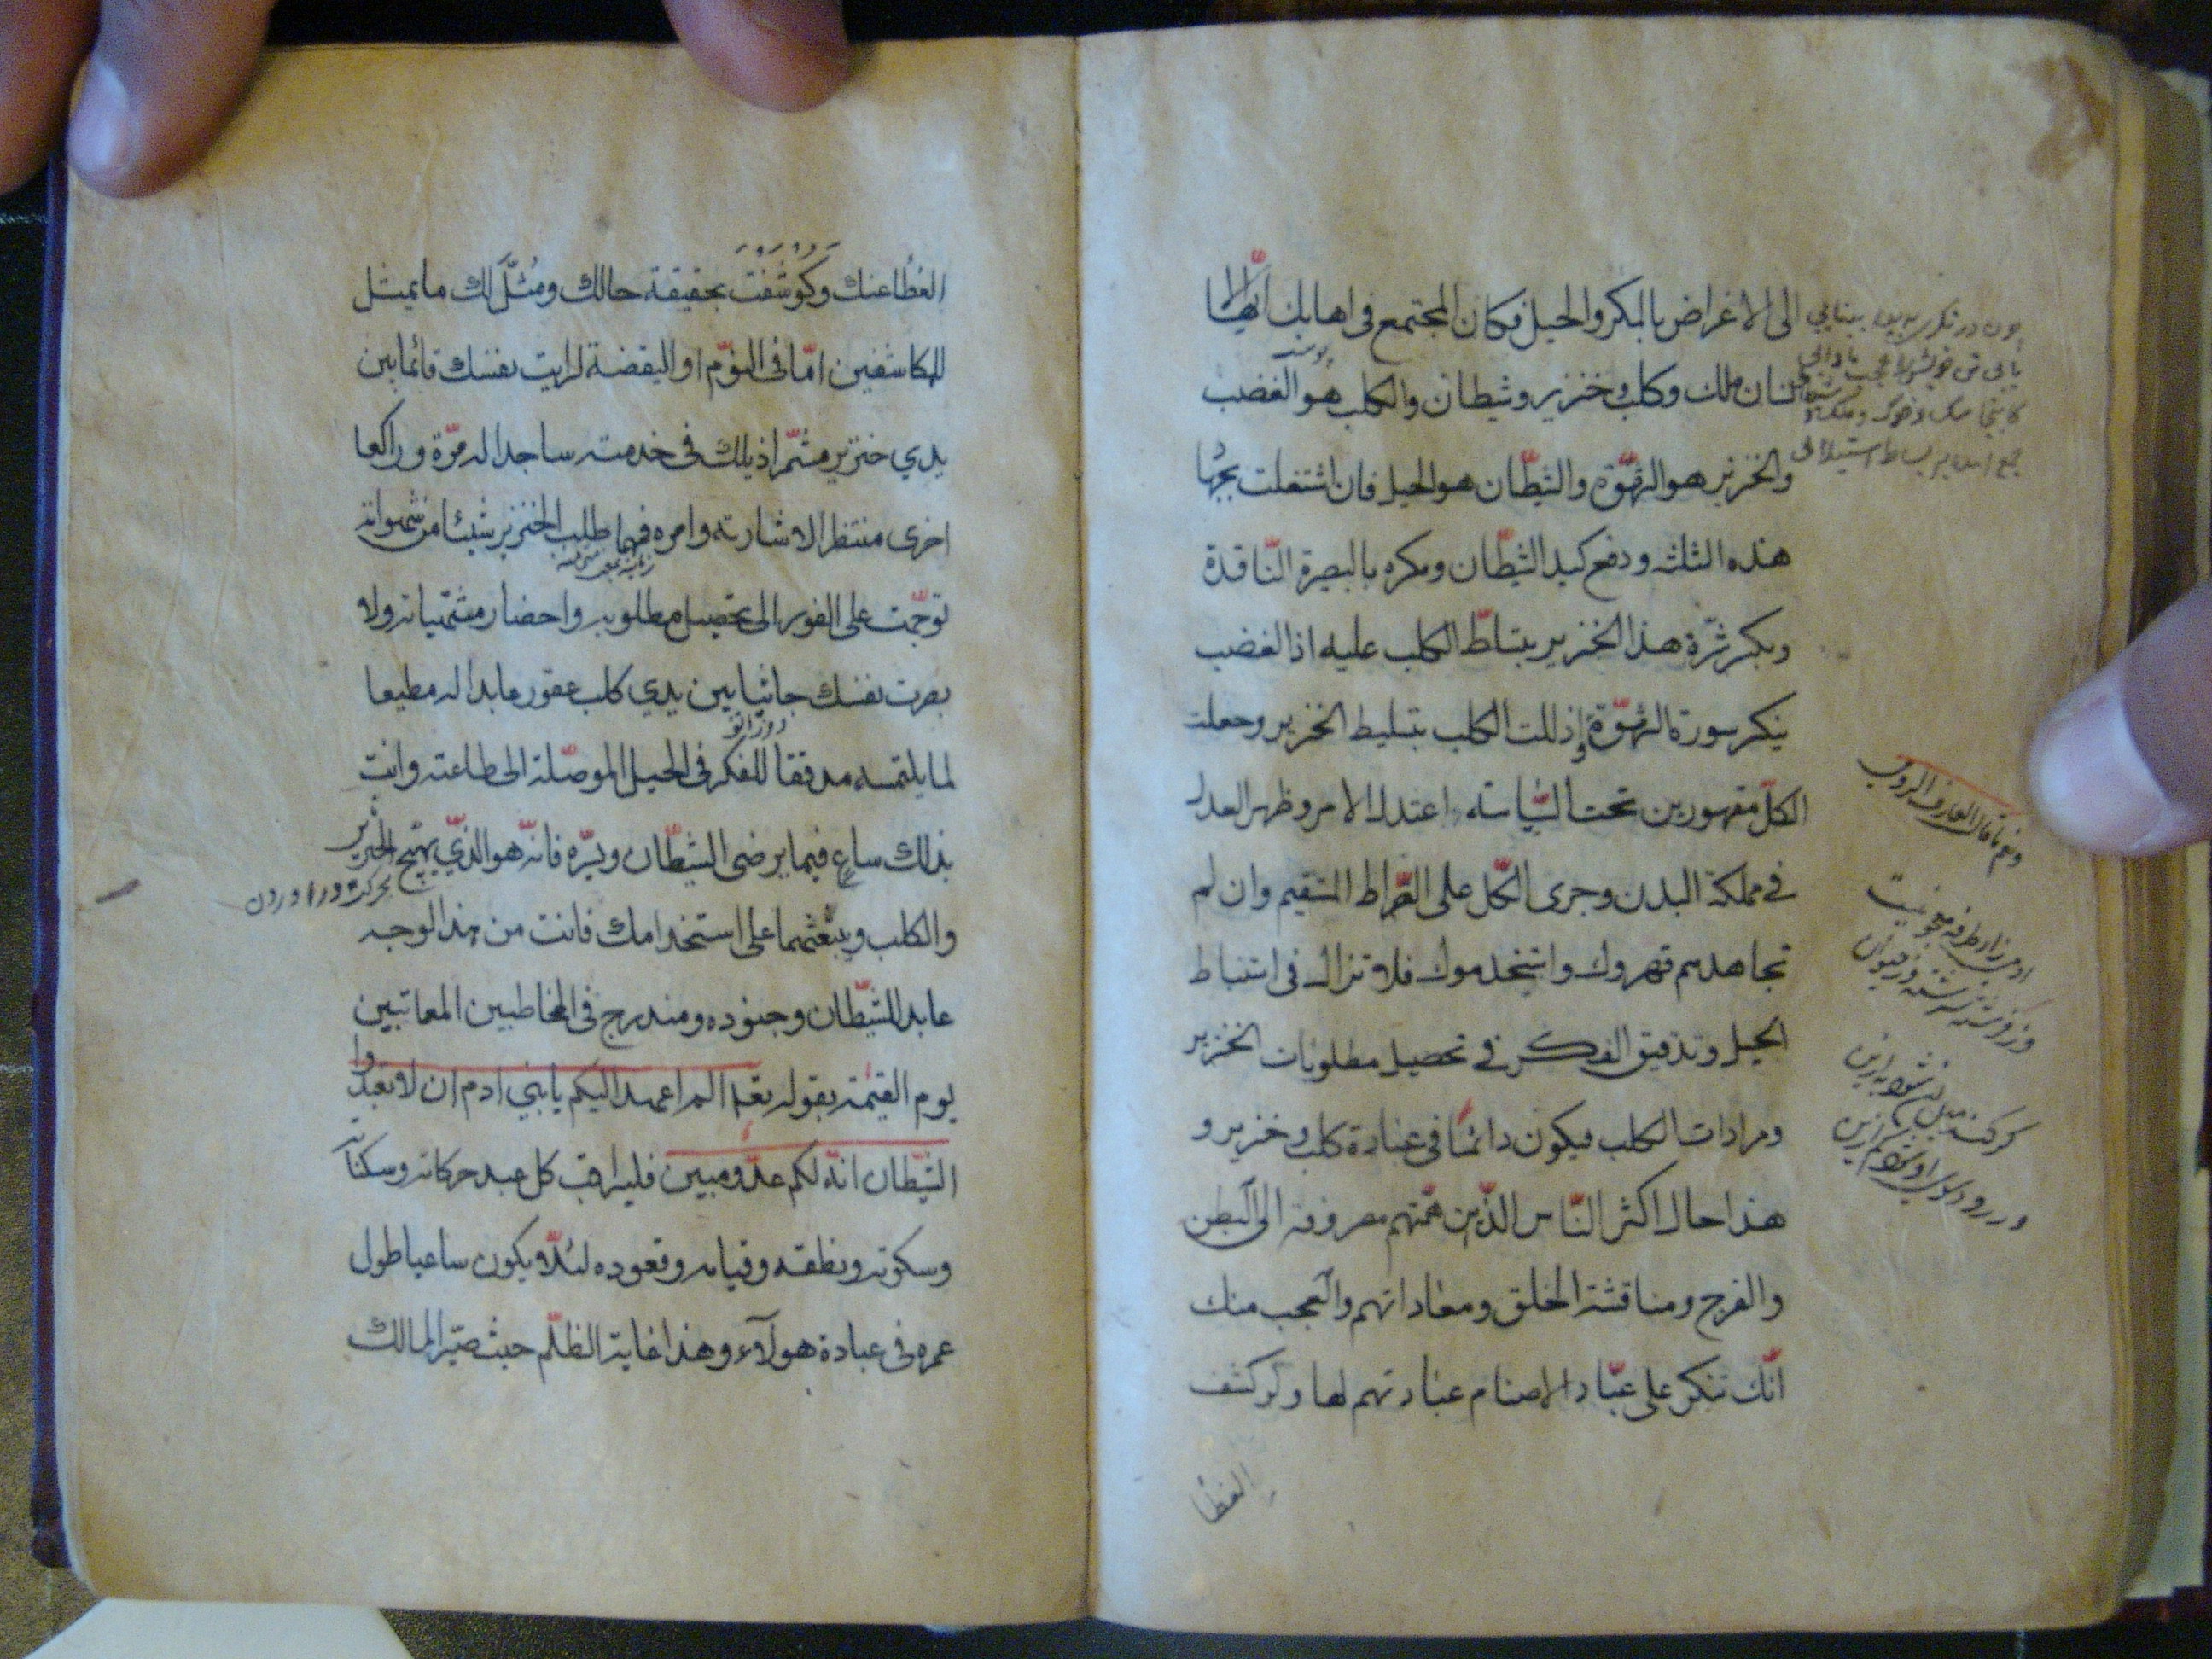 الى الاغراض بالمكر والحيل فكان المجتمع فى اهابك ايها
انسان ملك وكلب وخنزير وشيطان والكلب هو الغضب
پوست
والخنزير هو الشهوّة والشيطّان هو الحيل فان اشتغلت بجهاد
هذه الثلثه ودفع كيد الشيطّان ومكره بالبصيرة النّاقدة
وبكسر شرّة هذا الخنزير بتسلّط الكلب عليه اذ الغضب
ينكسر سورة الشهوّة واذللت الكلب بتسليط الخنزير وجعلت
الكلّ مقهورين تحت السّياسته اعتدل الامر وظهر العدل
فى مملكة البدن وجرى الكّل على الصّراط المستقيم وان لم
تجاهدهم قهروك واستخدموك فلا تزال فى استنباط
الحيل وتدقيق الفكر فى تحصيل مطلوبات الخنزير
ومرادات الكلب فيكون دائمًا فى عبادة كلب وخنزير و
هذا حال اكثر النّاس الذّين همّتهم مصروفة الى البطن
والفرج ومناقشة الخلق ومعاداتهم والعجب منك
انّك تنكر على عبّاد الاصنام عبادتهم لها ولو كشف
الغطا
ونعم ما قال العارف الرومى
ادمى زاد طرفه معجونيست
وز فرشته سرشته وز حيوان
كر كند ميل اين شود به ازين
ور رود سوى آن شود كم ازين
الغطُا عنك وكُوشفْتَ بحقيقة حالك ومُثّلَ لك ما يمثل
للمكاشفين امّا فى النوّم او اليقضة لرايت نفسك قائما بين
يدي خنزير مشمّرا ذيلك فى خدمته ساجدا له مرّة وراكعا
اخرى منتظرا لاشارته وامره فمهما طلب الخنزير شيئا من شهواته
توجّهت على الفور الى تحصيل مطلوبه واحضار مشتهّياته ولا
بصرت نفسك جاثيا بين يدي كلب عقور عابدا له مطيعا
دوزانو
لما يلتمسه مدققا للفكر فى الحيل الموصّلة الى طاعته وانت
بذلك ساعٍ فيما يرضى الشيطّان ويسرّه فانّه هو الذّي يهيّج الخنزير
بحركت در اوردن
والكلب ويبعثهما على استخدامك فانت من هذا الوجه
عابد للشيطّان وجنوده ومندرج فى المخاطبين المعاتبين
يوم القيمة بقوله تعالى الم اعهد اليكم يا بني ادم ان لا تعبدوا
الشيطّان انّه لكم عدّو مبين فليراقب كل عبد حركاته وسكناته
وسكوته ونطقه وقيامه وقعوده لئلّا يكون ساعيا طول
عمره فى عبادة هولآء وهذا غاية الظلّم حيث صيّر المالك